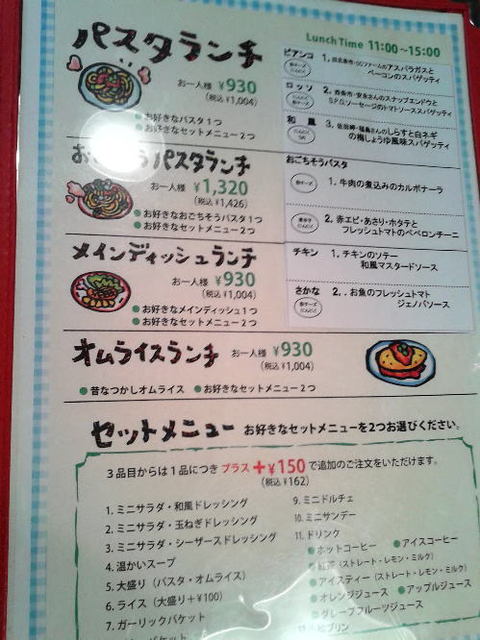 パスタランチ
お一人様 ¥930
(税込 ¥1,004)
● お好きなパスタ1つ
● お好きなセットメニュー2つ
パスタランチ
お一人様 ¥1,320
(税込 ¥1,426)
● お好きなおごちそうパスタ1つ
● お好きなセットメニュー2つ
メインディッシュランチ
お一人様 ¥930
(税込 ¥1,004)
● お好きなメインディッシュ1つ
● お好きなセットメニュー2つ
Lunch Time 11:00〜15:00
ビアンコ
アスパラガスと
ベーコンのスパゲッティ
ロッソ
スナップエンドウと
ソーセージのトマトソーススパゲッティ
和風
3. しらすと白ネギ
の梅しょうゆ風味スパゲッティ
おごちそうパスタ
1. 牛肉の煮込みのカルボナーラ
2. 赤エビ・あさり・ホタテと
フレッシュトマトのペペロンチーニ
チキン 1. チキンのソテー
和風マスタードソース
さかな 2. . お魚のフレッシュトマト
ジェノバソース
オムライスランチ お一人様 ¥930
(税込 ¥1,004)
● 昔なつかしオムライス ● お好きなセットメニュー2つ
セットメニュー お好きなセットメニューを2つお選びください。
3品目からは1品につき プラス +¥150 で追加のご注文をいただけます。
(税込 ¥162)
1. ミニサラダ・和風ドレッシング
2. ミニサラダ・玉ねぎドレッシング
3. ミニサラダ・シーザースドレッシング
4. 温かいスープ
5. 大盛り (パスタ・オムライス)
6. ライス (大盛り+¥100)
7. ガーリックバケット
バケット
9. ミニドルチェ
10. ミニサンデー
11. ドリンク
● ホットコーヒー ● アイスコーヒー
● 紅茶 (ストレート・レモン・ミルク)
● アイスティー (ストレート・レモン・ミルク)
● オレンジジュース ● アップルジュース
● グレープフルーツジュース
プリン